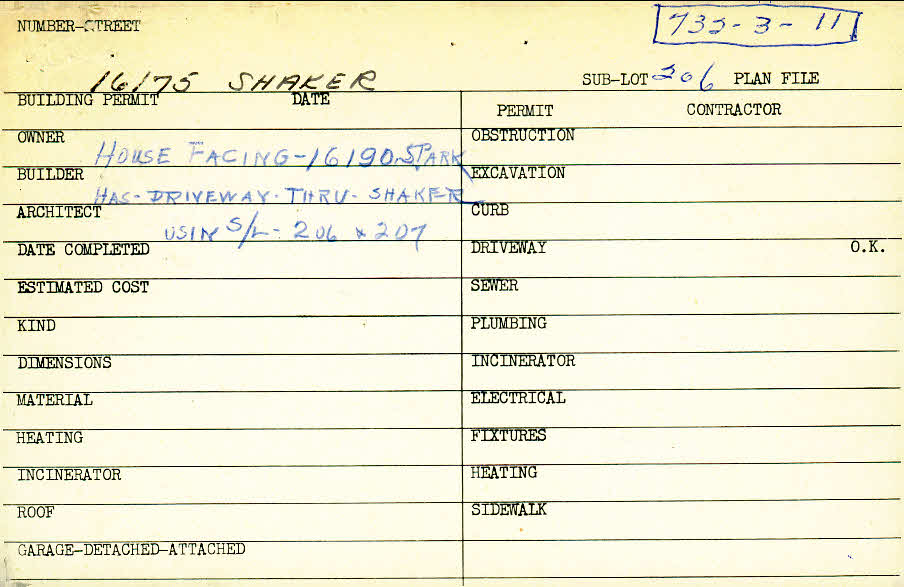 NUMBER-STREET
732-3-11
16175 SHAKER
SUB-LOT 206 PLAN FILE
BUILDING PERMIT DATE
PERMIT CONTRACTOR
OWNER
HOUSE FACING-16190-S PARK
OBSTRUCTION
BUILDER
HAS-DRIVEWAY-THRU-SHAKER
EXCAVATION
ARCHITECT
USIN S/L-206 & 207
CURB
DATE COMPLETED
DRIVEWAY O.K.
ESTIMATED COST
SEWER
KIND
PLUMBING
DIMENSIONS
INCINERATOR
MATERIAL
ELECTRICAL
HEATING
FIXTURES
INCINERATOR
HEATING
ROOF
SIDEWALK
GARAGE-DETACHED-ATTACHED